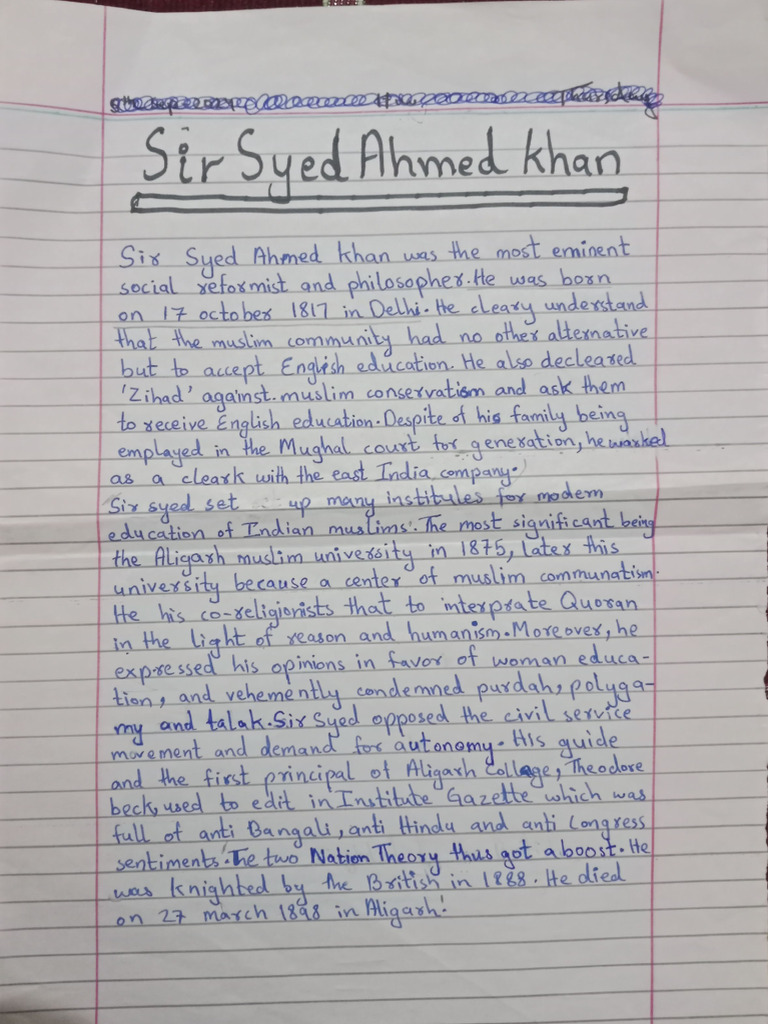 Sir Syed Ahmed khan
Sir Syed Ahmed khan was the most eminent
social reformist and philosopher. He was born
on 17 october 1817 in Delhi. He cleary understand
that the muslim community had no other alternative
but to accept English education. He also decleared
'Zihad' against muslim conservatism and ask them
to receive English education. Despite of his family being
emplayed in the Mughal court for generation, he warked
as a cleark with the east India company.
Sir syed set up many institules for modern
education of Indian muslims. The most significant being
the Aligarh muslim university in 1875, later this
university because a center of muslim communatism.
He his co-religionists that to interprate Quoran
in the light of reason and humanism. Moreover, he
expressed his opinions in favor of woman educa-
tion, and vehemently condemned purdah, polyga-
my and talak. Sir Syed opposed the civil service
movement and demand for autonomy. His guide
and the first principal of Aligarh Collage, Theodore
beck, used to edit in Institute Gazette which was
full of anti Bangali, anti Hindu and anti Congress
sentiments. The two Nation Theory thus got a boost. He
was knighted by the British in 1888. He died
on 27 march 1898 in Aligarh!